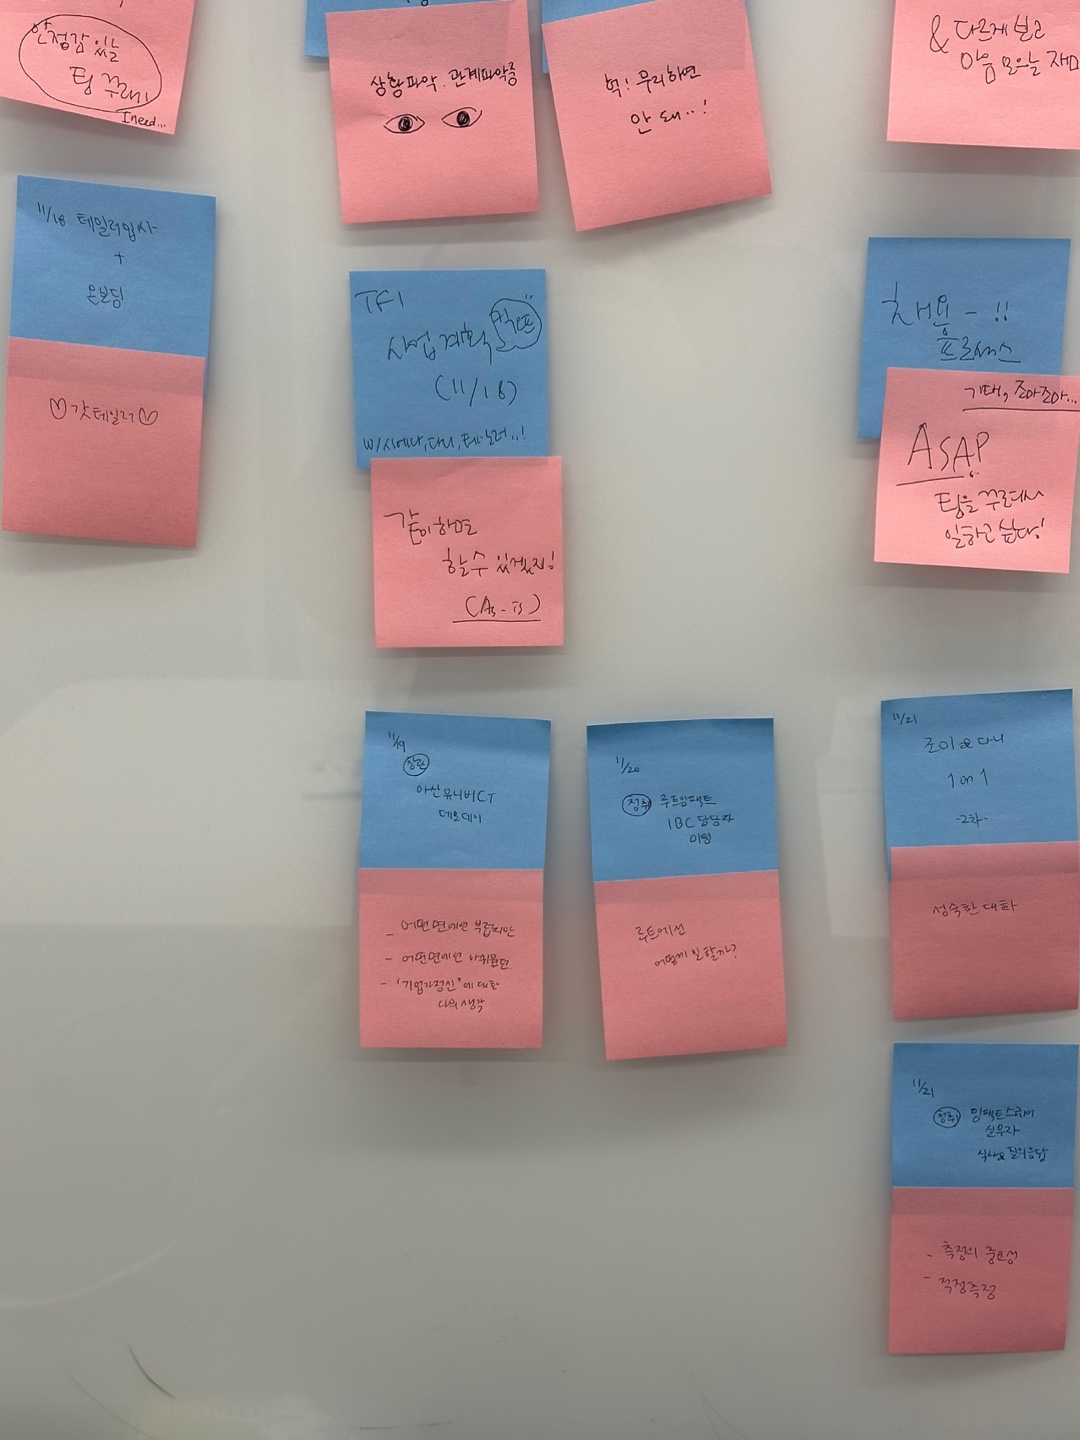 안정감 있는
팀 꾸려!
I need...
상황파악. 관계파악중
헉! 무리하면
안 돼..!
& 다르게 보고
마음 모으는 재미
11/18 테일러입사
+
온보딩
♡갓테일러♡
TF1
사업계획 킥오프
(11/18)
w/시에나, 다니, 테일러..!
같이하면
할 수 있겠지!
(As-is)
채용 - !!
프로세스
기태, 조아조아...
ASAP
팀을 꾸려서
일하고 싶다!
11/19
아산유니버CT
데모데이
- 어떤면에선 부럽지만
- 어떤면에선 아쉬웠던
- '기업가정신'에 대한
나의 생각
11/20
루트임팩트
IBC 담당자
미팅
루트에선
어떻게 일할까?
11/21
조이 & 다니
1 on 1
-2차-
성숙한 대화
11/21
임팩트스퀘어
실무자
식사 & 질의응답
- 측정의 중요성
- 적정측정